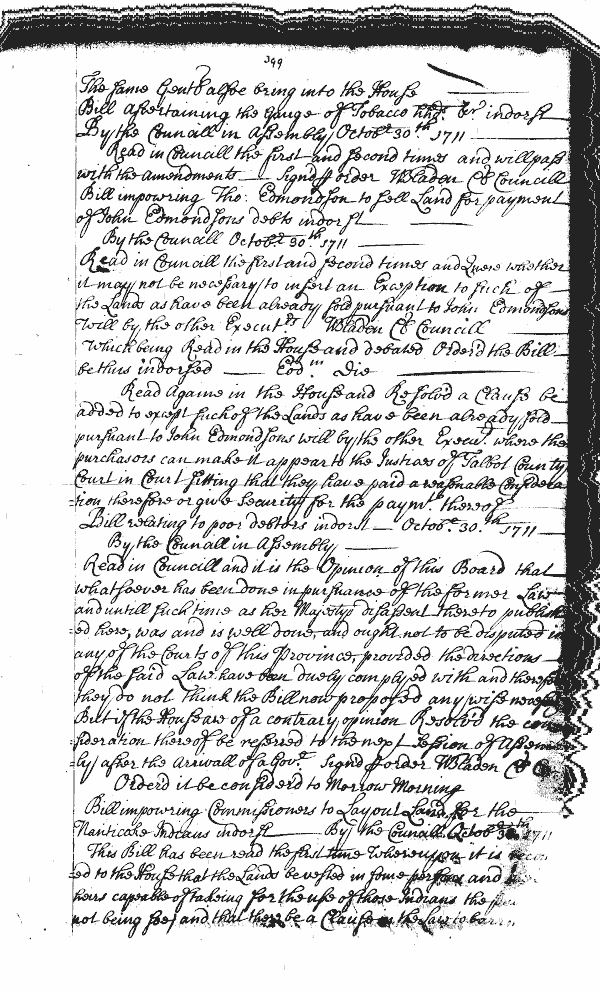 399
The same Gent also bring into the House
Bill Ascertaining the Gauge of Tobacco hhds &r indorst
By the Councill in Assembly Octobr 30th 1711
Read in Councill the first and second times and will pass
with the amendments Signd p order WBladen Cl Councill
Bill impowring Tho: Edmondson to sell Land for payment
of John Edmondsons debts indorst
By the Councill Octobr 30th 1711
Read in Councill the first and second times and Quere whether
it may not be necessary to insert an Exception to such of
the Lands as have been already sold pursuant to John Edmondsons
Will by the other Executrs WBladen Cl Councill
Which being Read in the House and debated Orderd the Bill
be thus indorsed Eodm Die
Read againe in the House and Resolvd a Clause be
added to except such of the Lands as have been already sold
pursuant to John Edmondsons will by the other Execurs where the
purchasors can make it appear to the Justices of Talbot County
Court in Court sitting that they have paid a reasonable Considera
tion therefore or give Security for the paymt thereof
Bill relating to poor debtors indorst Octobr 30th 1711
By the Councill in Assembly
Read in Councill and it is the Opinion of this Board that
whatsoever has been done in pursuance of the former Law
and untill such time as her Majestys disassent thereto publish
=ed here, was and is well done, and ought not to be disputed in
any of the Courts of this Province, provided the directions
of the said Law have been duely complyed with and therefore
they do not think the Bill now proposed any wise necessary
But if the House are of a contrary opinion Resolvd the con
=sideration thereof be referred to the next Session of Assem
=bly after the Arrivall of a Govr Signd p order WBladen Cl C
Orderd it be considerd to Morrow Morning
Bill impowring Commissioners to Layout Land for the
Nanticoke Indians indorst By the Councill Octobr 30th 1711
This Bill has been read the first time Whereupon it is recom
=ed to the House that the Lands be vested in some persons and
heirs capeable of takeing for the use of those Indians the
not being soe, and that there be a Clause in the Law to barr